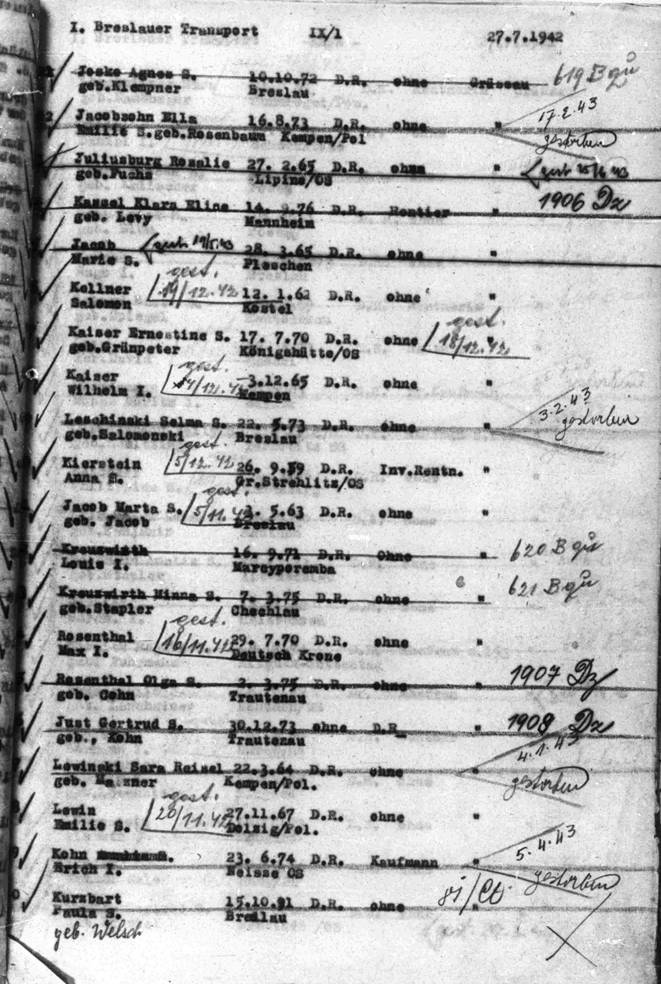 I. Breslauer Transport IX/1 27.7.1942
Jeske Agnes S. 10.10.72 D.R. ohne Grüssau 619 Bqu
geb.Klempner Breslau
Jacobsohn Ella 16.8.73 D.R. ohne " 17.2.43
Emilie S.geb.Rosenbaum Kempen/Pol gestorben
Juliusburg Rosalie 27. 2.65 D.R. ohne "
geb.Fuchs Lipine/OS
Kassel Klara Eline 14. 9.76 D.R. Rentier " 1906 Dz
geb. Levy Mannheim
Jacob gest 19/5.43 28. 3.65 D.R. ohne "
Marie S. Pleschen
Kellner gest. 14/12.42 12. 1.62 D.R. ohne "
Salomon Kostel
Kaiser Ernestine S. 17. 7.70 D.R. ohne gest. 18/12.42
geb.Grünpeter Königshütte/OS
Kaiser gest. 14/12.42 3.12.65 D.R. ohne "
Wilhelm I. Kempen
Leschinski Selma S. 22. 5.73 D.R. ohne " 3.2.43
geb.Salomonski Breslau gestorben
Kierstein gest. 5/12.42 26. 9.59 D.R. Inv.Rentn. "
Anna S. Gr.Strehlitz/OS
Jacob Marta S. gest. 5/11.42 5.63 D.R. ohne "
geb. Jacob Breslau
Kreuzwirth 16. 9.71 D.R. Ohne " 620 Bqu
Louis I. Marcyporemba
Kreuzwirth Minna S. 7. 3.75 D.R. ohne " 621 Bqu
geb.Stapler Chechlau
Rosenthal gest. 16/11.42 29. 7.70 D.R. ohne "
Max I. Deutsch Krone
Rosenthal Olga S. 2. 3.75 D.R. ohne " 1907 Dz
geb. Cohn Trautenau
Just Gertrud S. 30.12.73 ohne D.R. " 1908 Dz
geb., Kohn Trautenau
Lewinski Sara Reisel 22.3.64 D.R. ohne " 4.1.43
geb. Kempen/Pol. gestorben
Lewin gest. 20/11.42 27.11.67 D.R. ohne "
Emilie S. Dolzig/Pol.
Kohn 23. 6.74 D.R. Kaufmann " 5.4.43
Erich I. Neisse OS gestorben
Kurzbart 15.10.91 D.R. ohne "
Paula S. Breslau
geb. Welsch